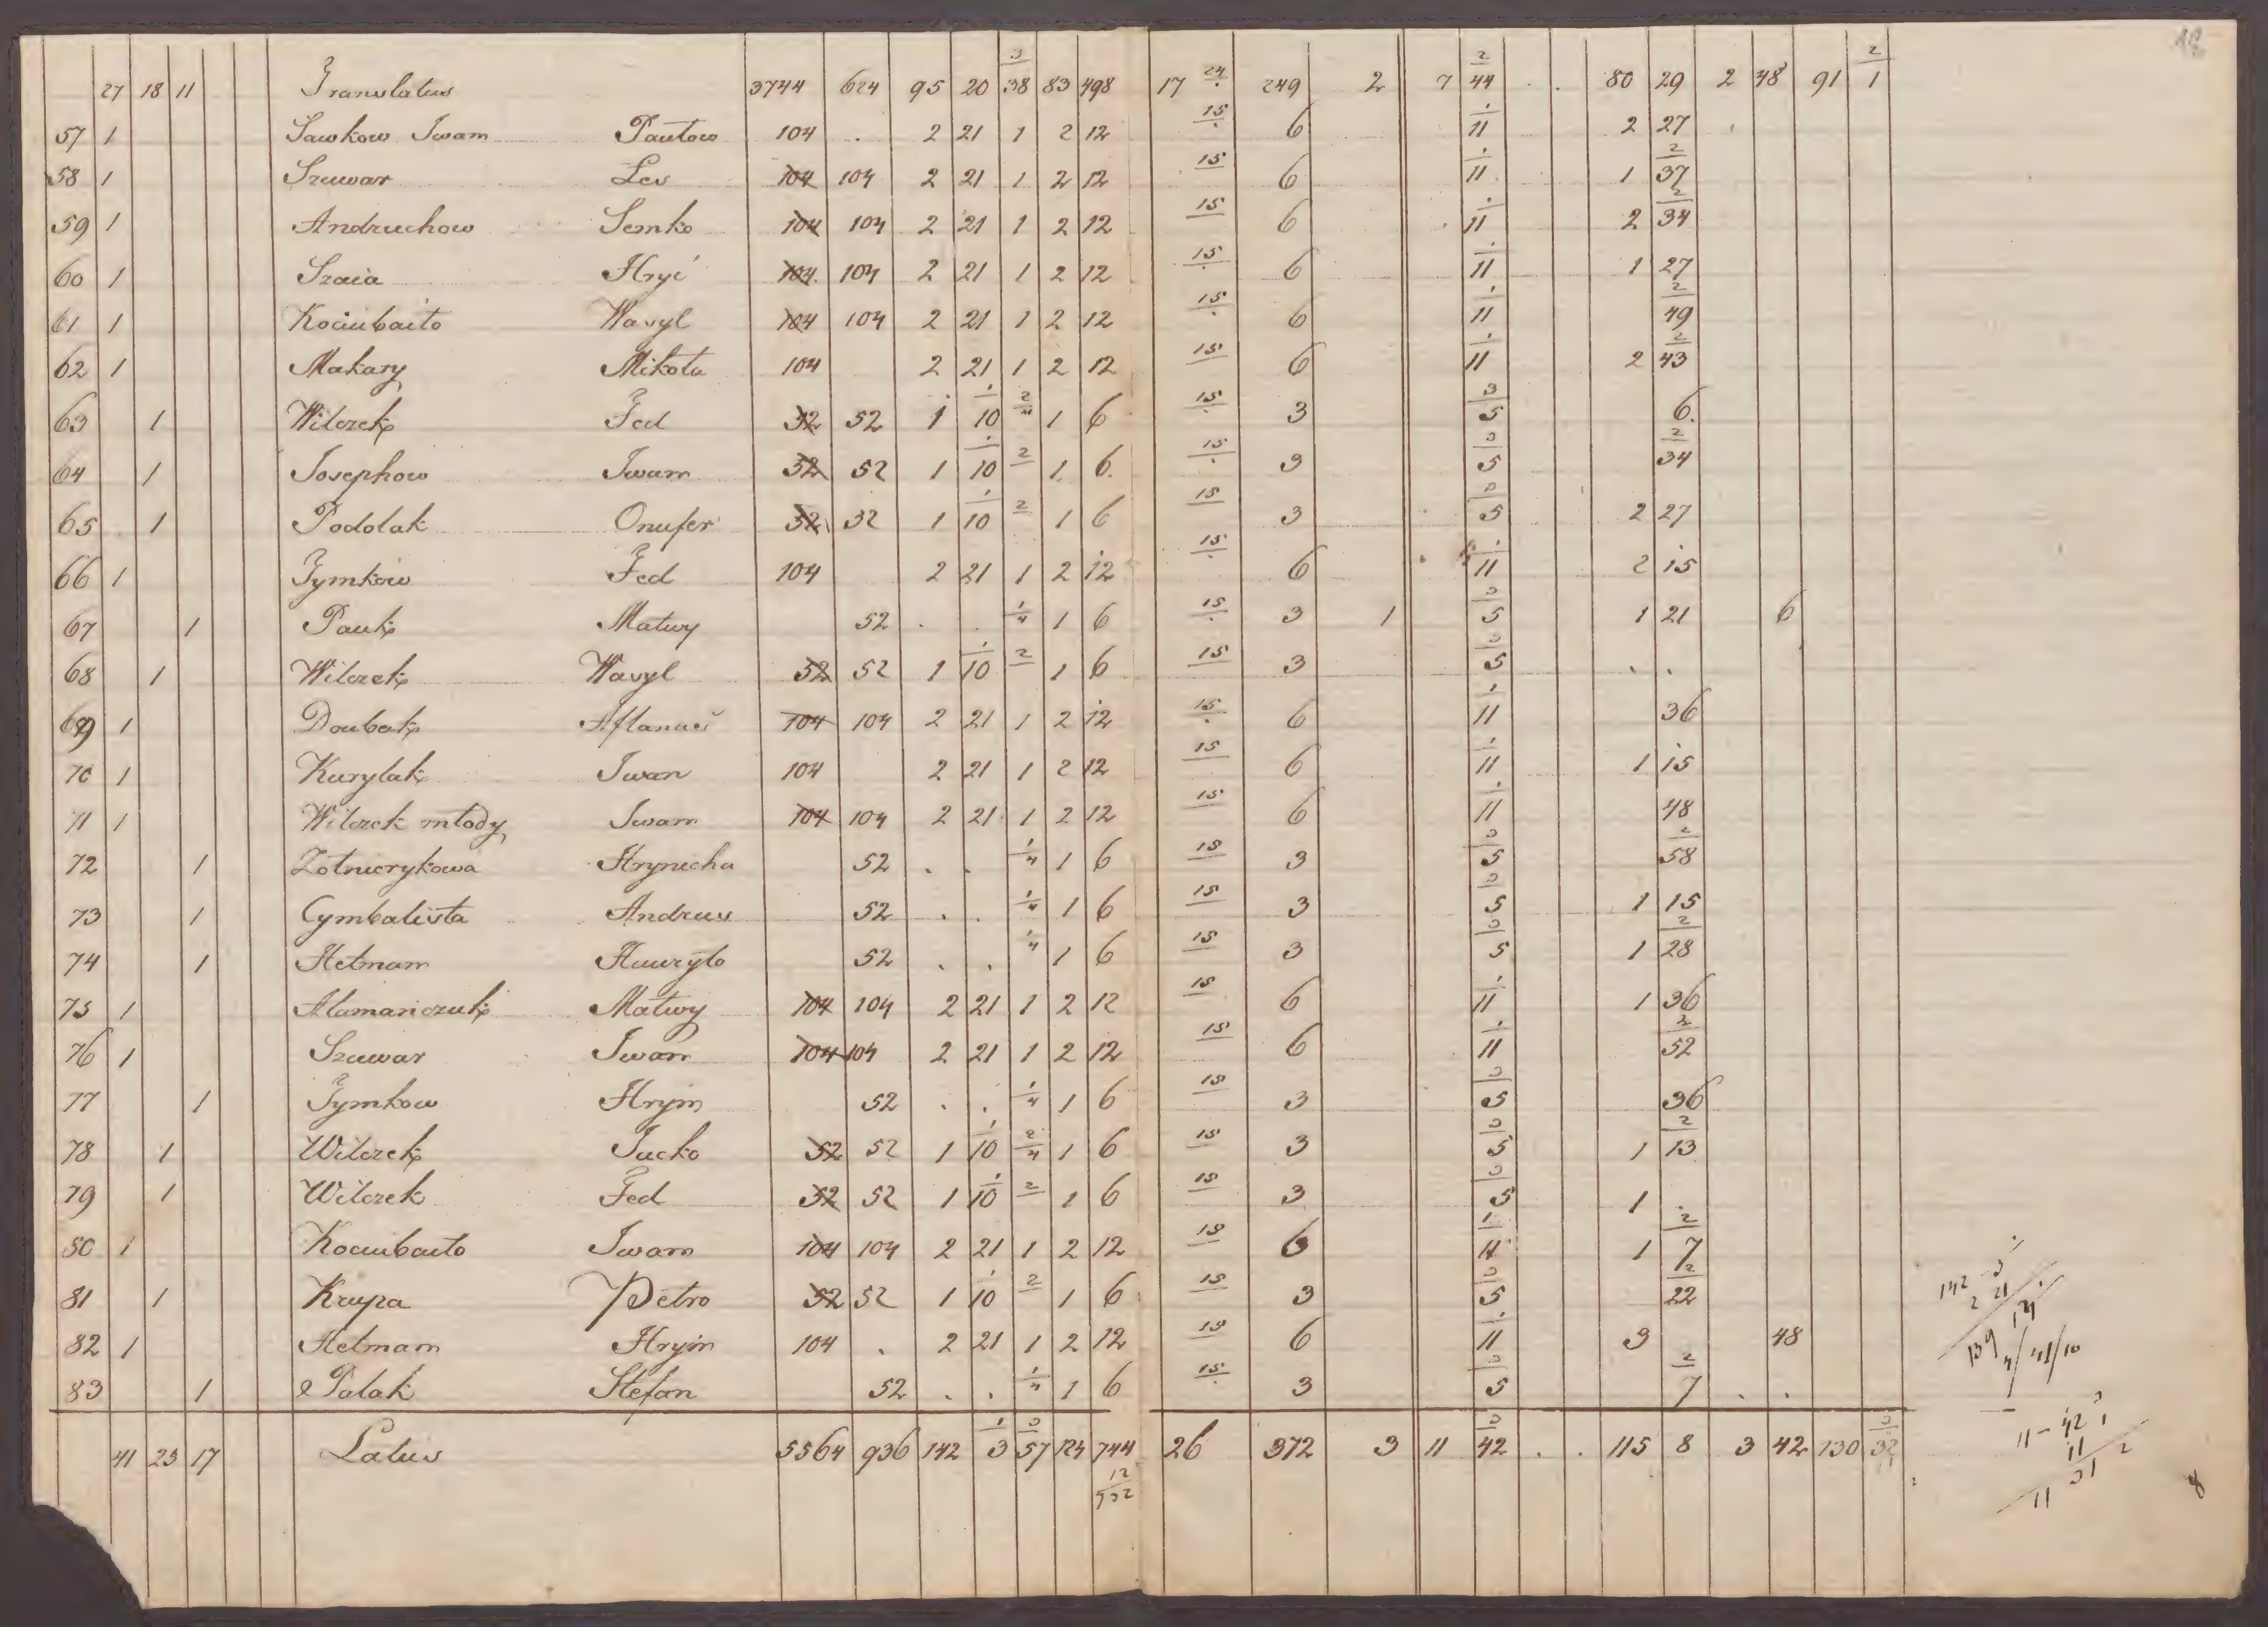 27 18 11 Translatus 3744 624 95 20 3/38 83 498 17 24 249 2 7 2/44 . . 80 29 2 48 91 2/1
57 1 Sawkow Iwam Pautow 104 . 2 21 1 2 12 15 6 1/11 2 27
58 1 Szuwar Les 104 104 2 21 1 2 12 15 6 1/11 1 2/37
59 1 Andruchow Semko 104 104 2 21 1 2 12 15 6 1/11 2 2/34
60 1 Szaia Hryć 104 104 2 21 1 2 12 15 6 1/11 1 27
61 1 Kociubaito Wasyl 104 104 2 21 1 2 12 15 6 1/11 2/49
62 1 Makary Mikota 104 2 21 1 2 12 15 6 1/11 2 2/43
63 1 Wilczek Fed 52 52 1 1/10 2/4 1 6 15 3 3/5 6
64 1 Josephow Iwam 52 52 1 1/10 2 1 6 15 3 3/5 2/34
65 1 Podolak Onufer 52 52 1 1/10 2 1 6 15 3 3/5 2 27
66 1 Tymkow Fed 104 2 21 1 2 12 15 6 1/11 2 15
67 1 Pauk Matwy 52 . . 1/4 1 6 15 3 1 3/5 1 21 6
68 1 Wilczek Wasyl 52 52 1 1/10 2 1 6 15 3 3/5 . .
69 1 Doubak Aftanas 104 104 2 21 1 2 12 15 6 1/11 36
70 1 Kurylak Iwan 104 2 21 1 2 12 15 6 1/11 1 15
71 1 Wilczek mtody Iwam 104 104 2 21 1 2 12 15 6 1/11 48
72 1 Zotnierykowa Hrynicha 52 . . 1/4 1 6 15 3 3/5 2/58
73 1 Cymbalista Andrus 52 . . 1/4 1 6 15 3 3/5 1 15
74 1 Hetmam Hawryto 52 . . 1/4 1 6 15 3 3/5 1 2/28
75 1 Atamanczuk Matwy 104 104 2 21 1 2 12 15 6 1/11 1 36
76 1 Szuwar Iwam 104 104 2 21 1 2 12 15 6 1/11 2/52
77 1 Tymkow Hrym 52 . . 1/4 1 6 15 3 3/5 36
78 1 Wilczek Jacko 52 52 1 1/10 2/4 1 6 15 3 3/5 1 2/13
79 1 Wilczek Fed 52 52 1 1/10 2 1 6 15 3 3/5 1 .
80 1 Kociubaito Iwam 104 104 2 21 1 2 12 15 6 1/11 1 2/7
81 1 Krupa Petro 52 52 1 1/10 2 1 6 15 3 3/5 2/22
82 1 Hetmam Hrym 104 . 2 21 1 2 12 15 6 1/11 3 48
83 1 Palak Stefan 52 . . 1/4 1 6 15 3 3/5 2/7 . .
41 23 17 Latus 5564 936 142 1/3 3/57 124 744 26 372 3 11 3/42 . . 115 8 3 42 130 3/32
8